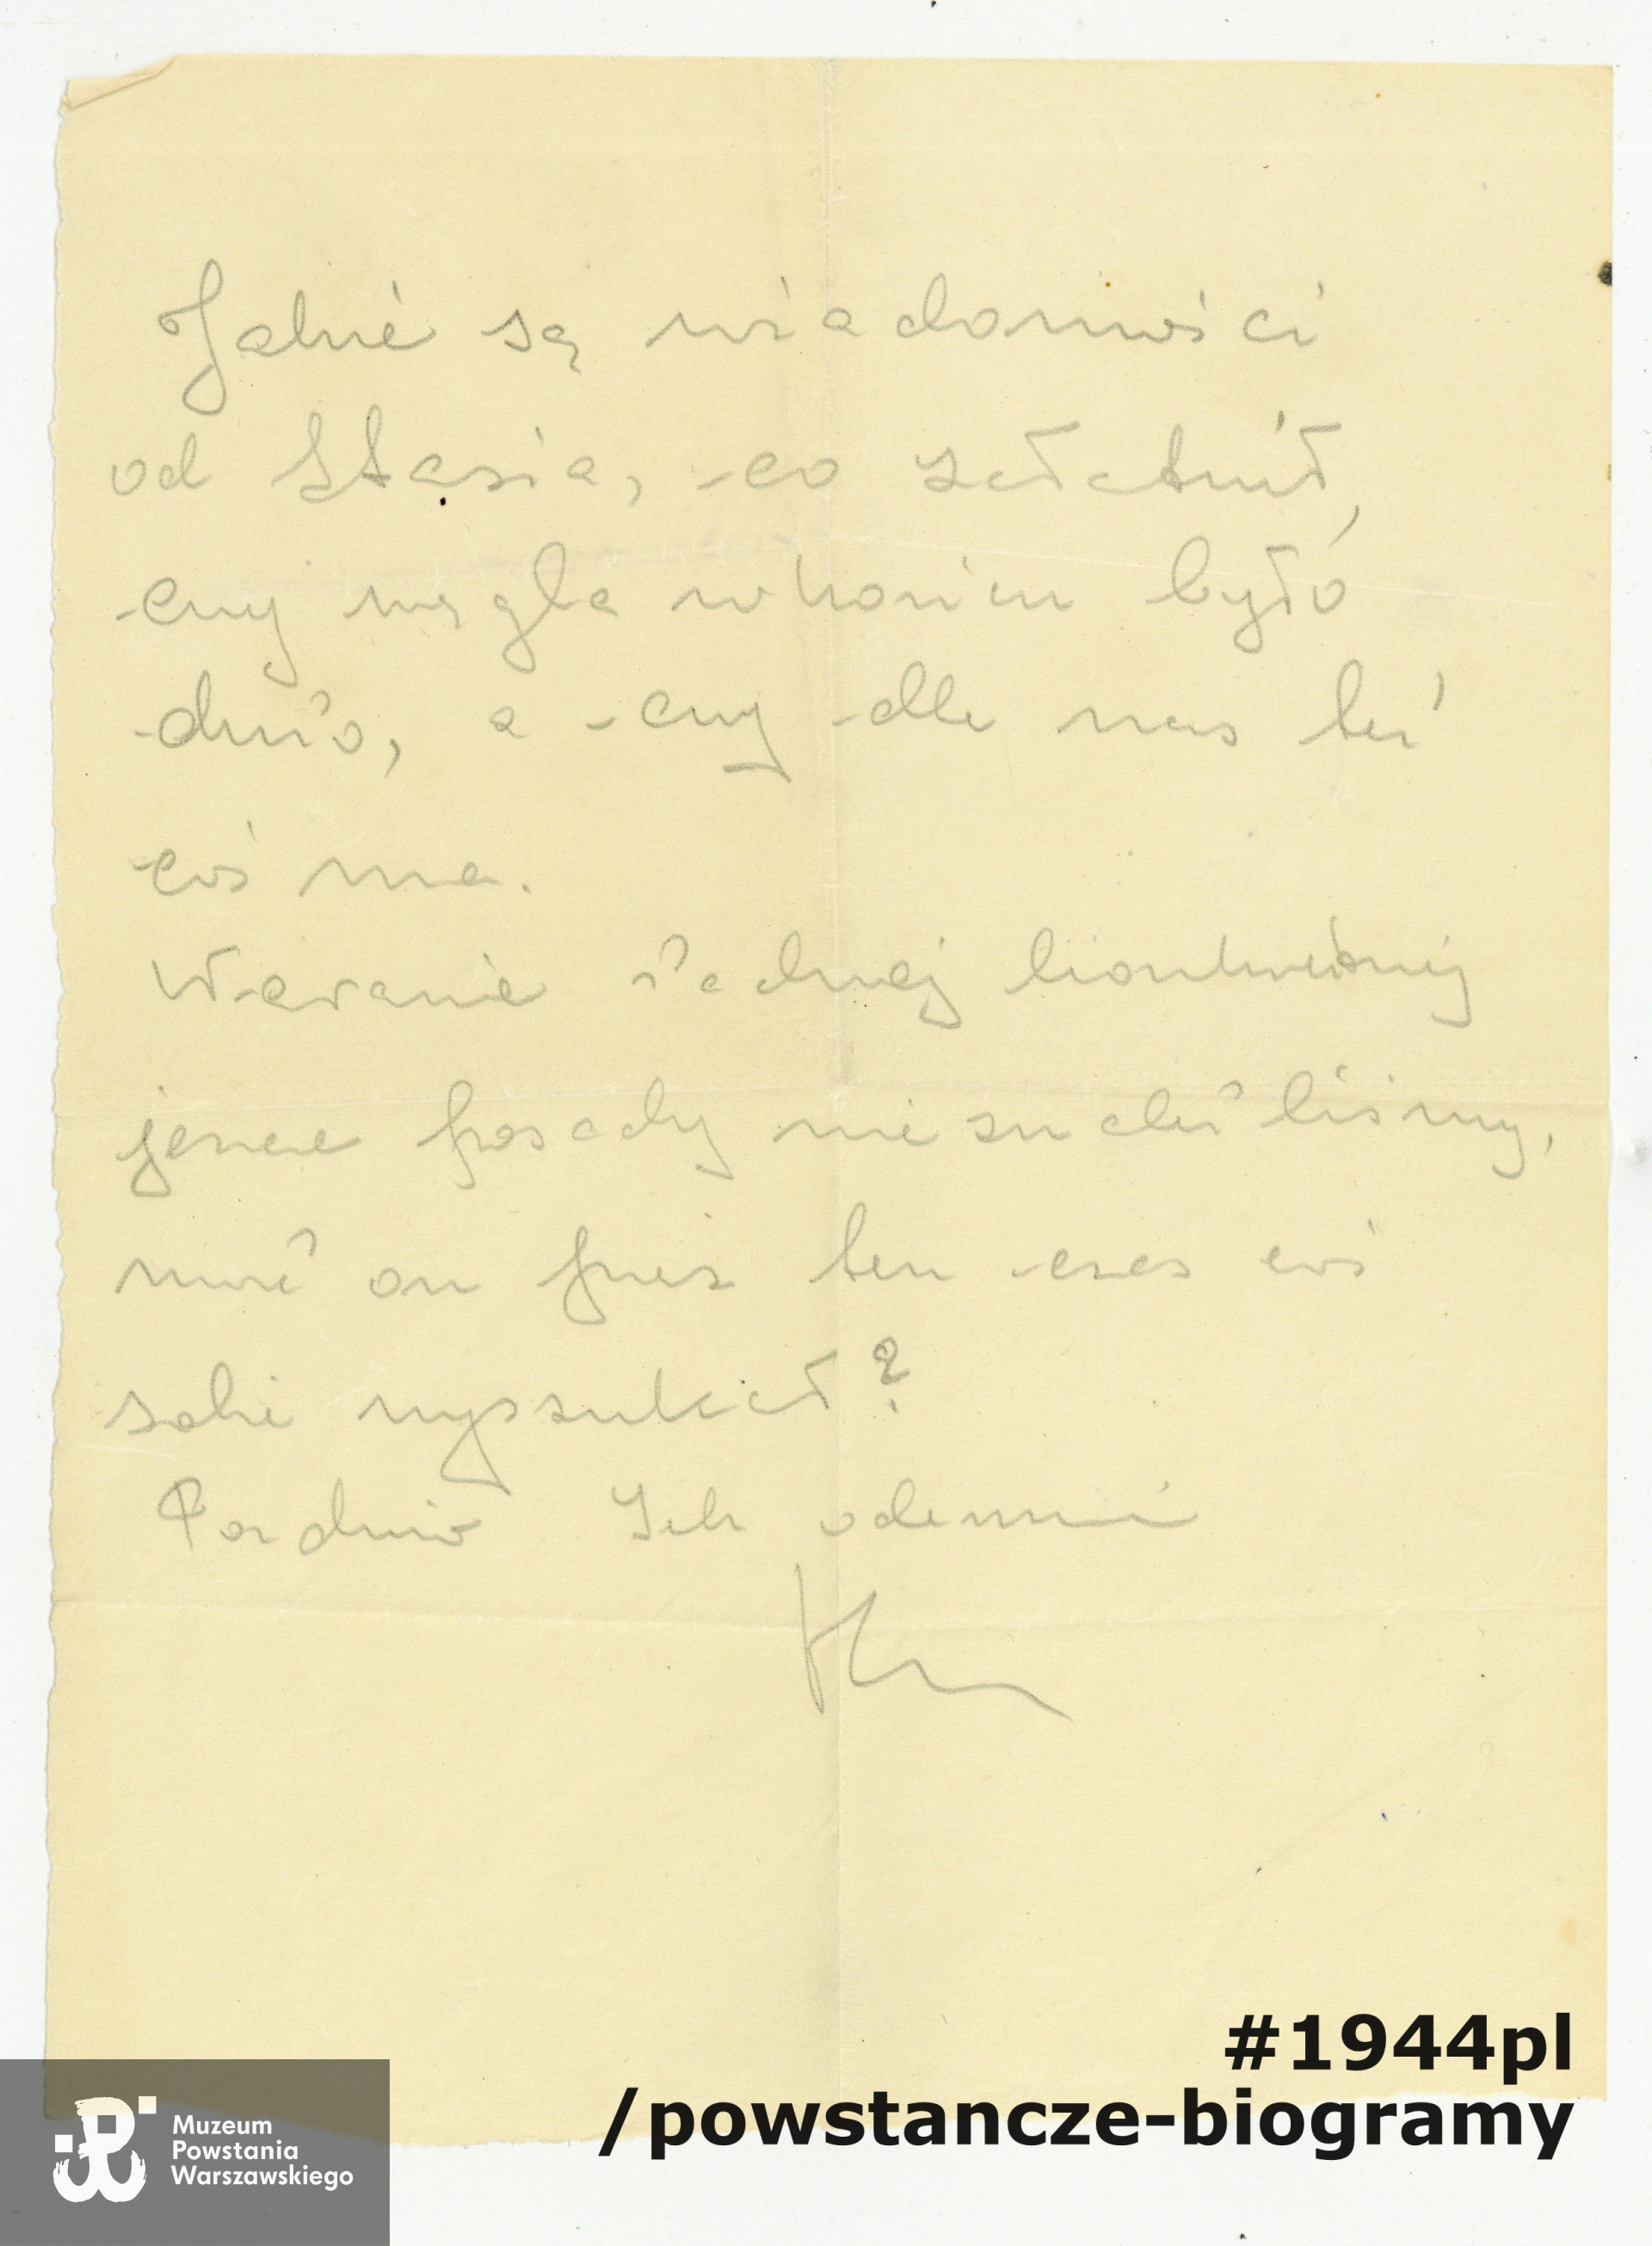 Jakie są wiadomości
od Stasia, co załatwił,
czy węgla w końcu było
dużo, a czy dla nas też
coś ma.
Właściwie żadnej konkretnej
jeszcze posady nie znaleźliśmy,
może on przez ten czas coś
sobie wyszukał?
Pozdrów Ich odemnie
#1944pl
/powstancze-biogramy
Muzeum
Powstania
Warszawskiego